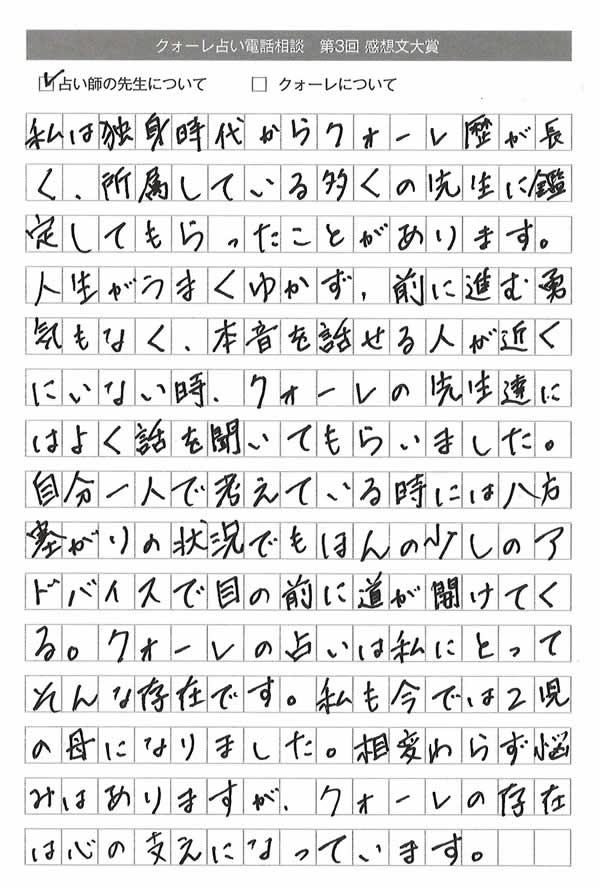 クォーレ占い電話相談　第3回 感想文大賞
☑占い師の先生について　□ クォーレについて
私は独身時代からクォーレ歴が長
く、所属している多くの先生に鑑
定してもらったことがあります。
人生がうまくゆかず、前に進む勇
気もなく、本音を話せる人が近く
にいない時、クォーレの先生達に
はよく話を聞いてもらいました。
自分一人で考えている時には八方
塞がりの状況でもほんの少しのア
ドバイスで目の前に道が開けてく
る。クォーレの占いは私にとって
そんな存在です。私も今では2児
の母になりました。相変わらず悩
みはありますが、クォーレの存在
は心の支えになっています。